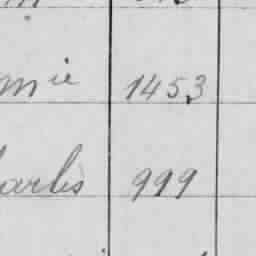 mie 1453
arles 999